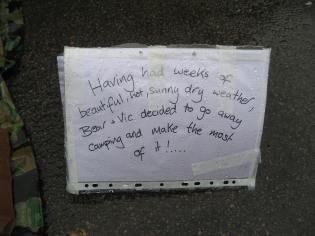 Having had weeks of
beautiful, hot, sunny dry weather,
Bear + Vic decided to go away
camping and make the most
of it!....